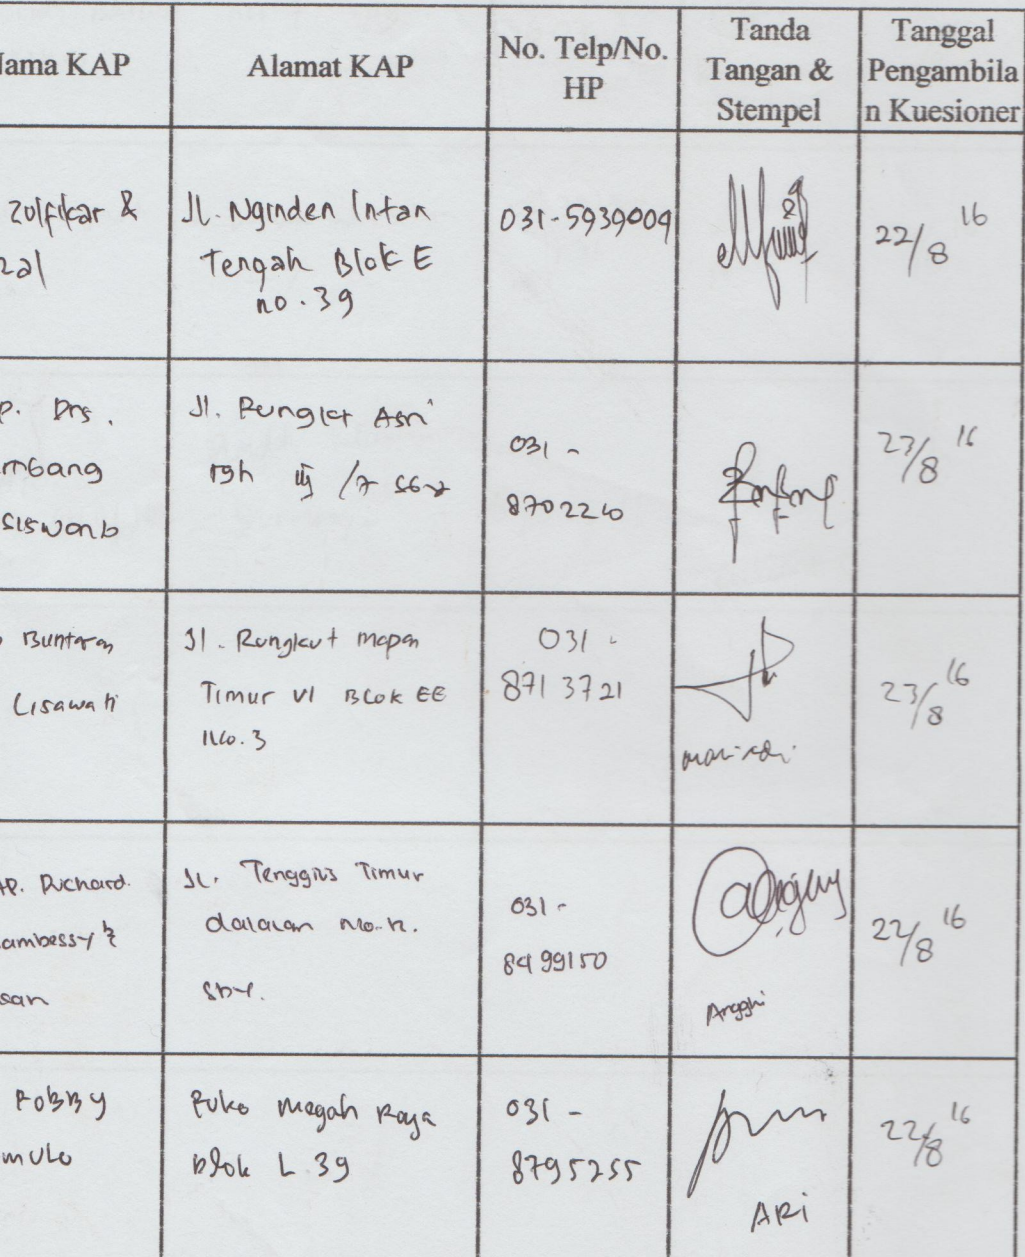 Nama KAP
Alamat KAP
No. Telp/No.
HP
Tanda
Tangan &
Stempel
Tanggal
Pengambila
n Kuesioner
Zulfikar &
zal
Jl. Nginden Intan
Tengah Blok E
no. 39
031-5939009
22/8 16
p. Drs.
mbang
siswanto
Jl. Rungkut Asri
/7 SBY
031 -
8702220
23/8 16
Buntaran
Lisawati
Jl. Rungkut Mapan
Timur VI Blok EE
No. 3
031 -
871 3721
23/8 16
AP. Richard
ambessy &
san
Jl. Tenggilis Timur
dalam
SBY.
031 -
8499150
Angghi
22/8 16
Robby
mulo
Ruko Megah Raya
blok L 39
031 -
8795255
ARi
22/8 16